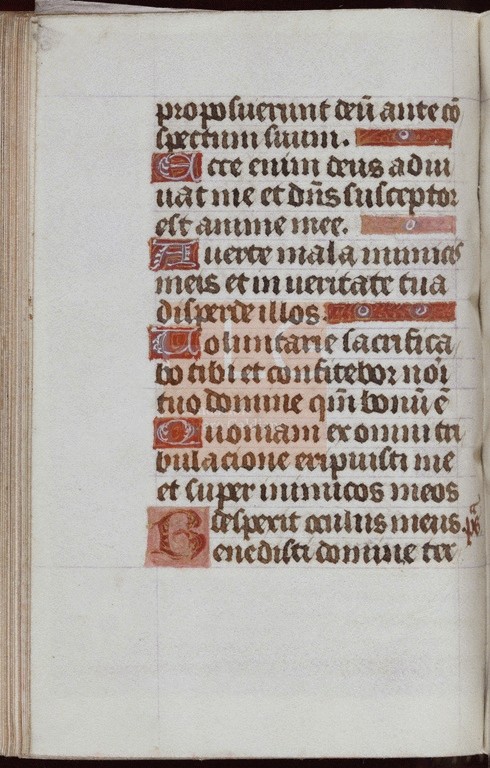 proposuerunt deū ante cō
spectum suum.
Ecce enim deus adiu
uat me et dn̄s susceptor
est anime mee.
Auerte mala inimicis
meis et in ueritate tua
disperde illos.
Uoluntarie sacrifica
bo tibi et confitebor noi
tuo domine qm̄ bonū ē
Quoniam ex omni tri
bulacione eripuisti me
et super inimicos meos
despexit oculus meus. ps
Benedisti domine ter